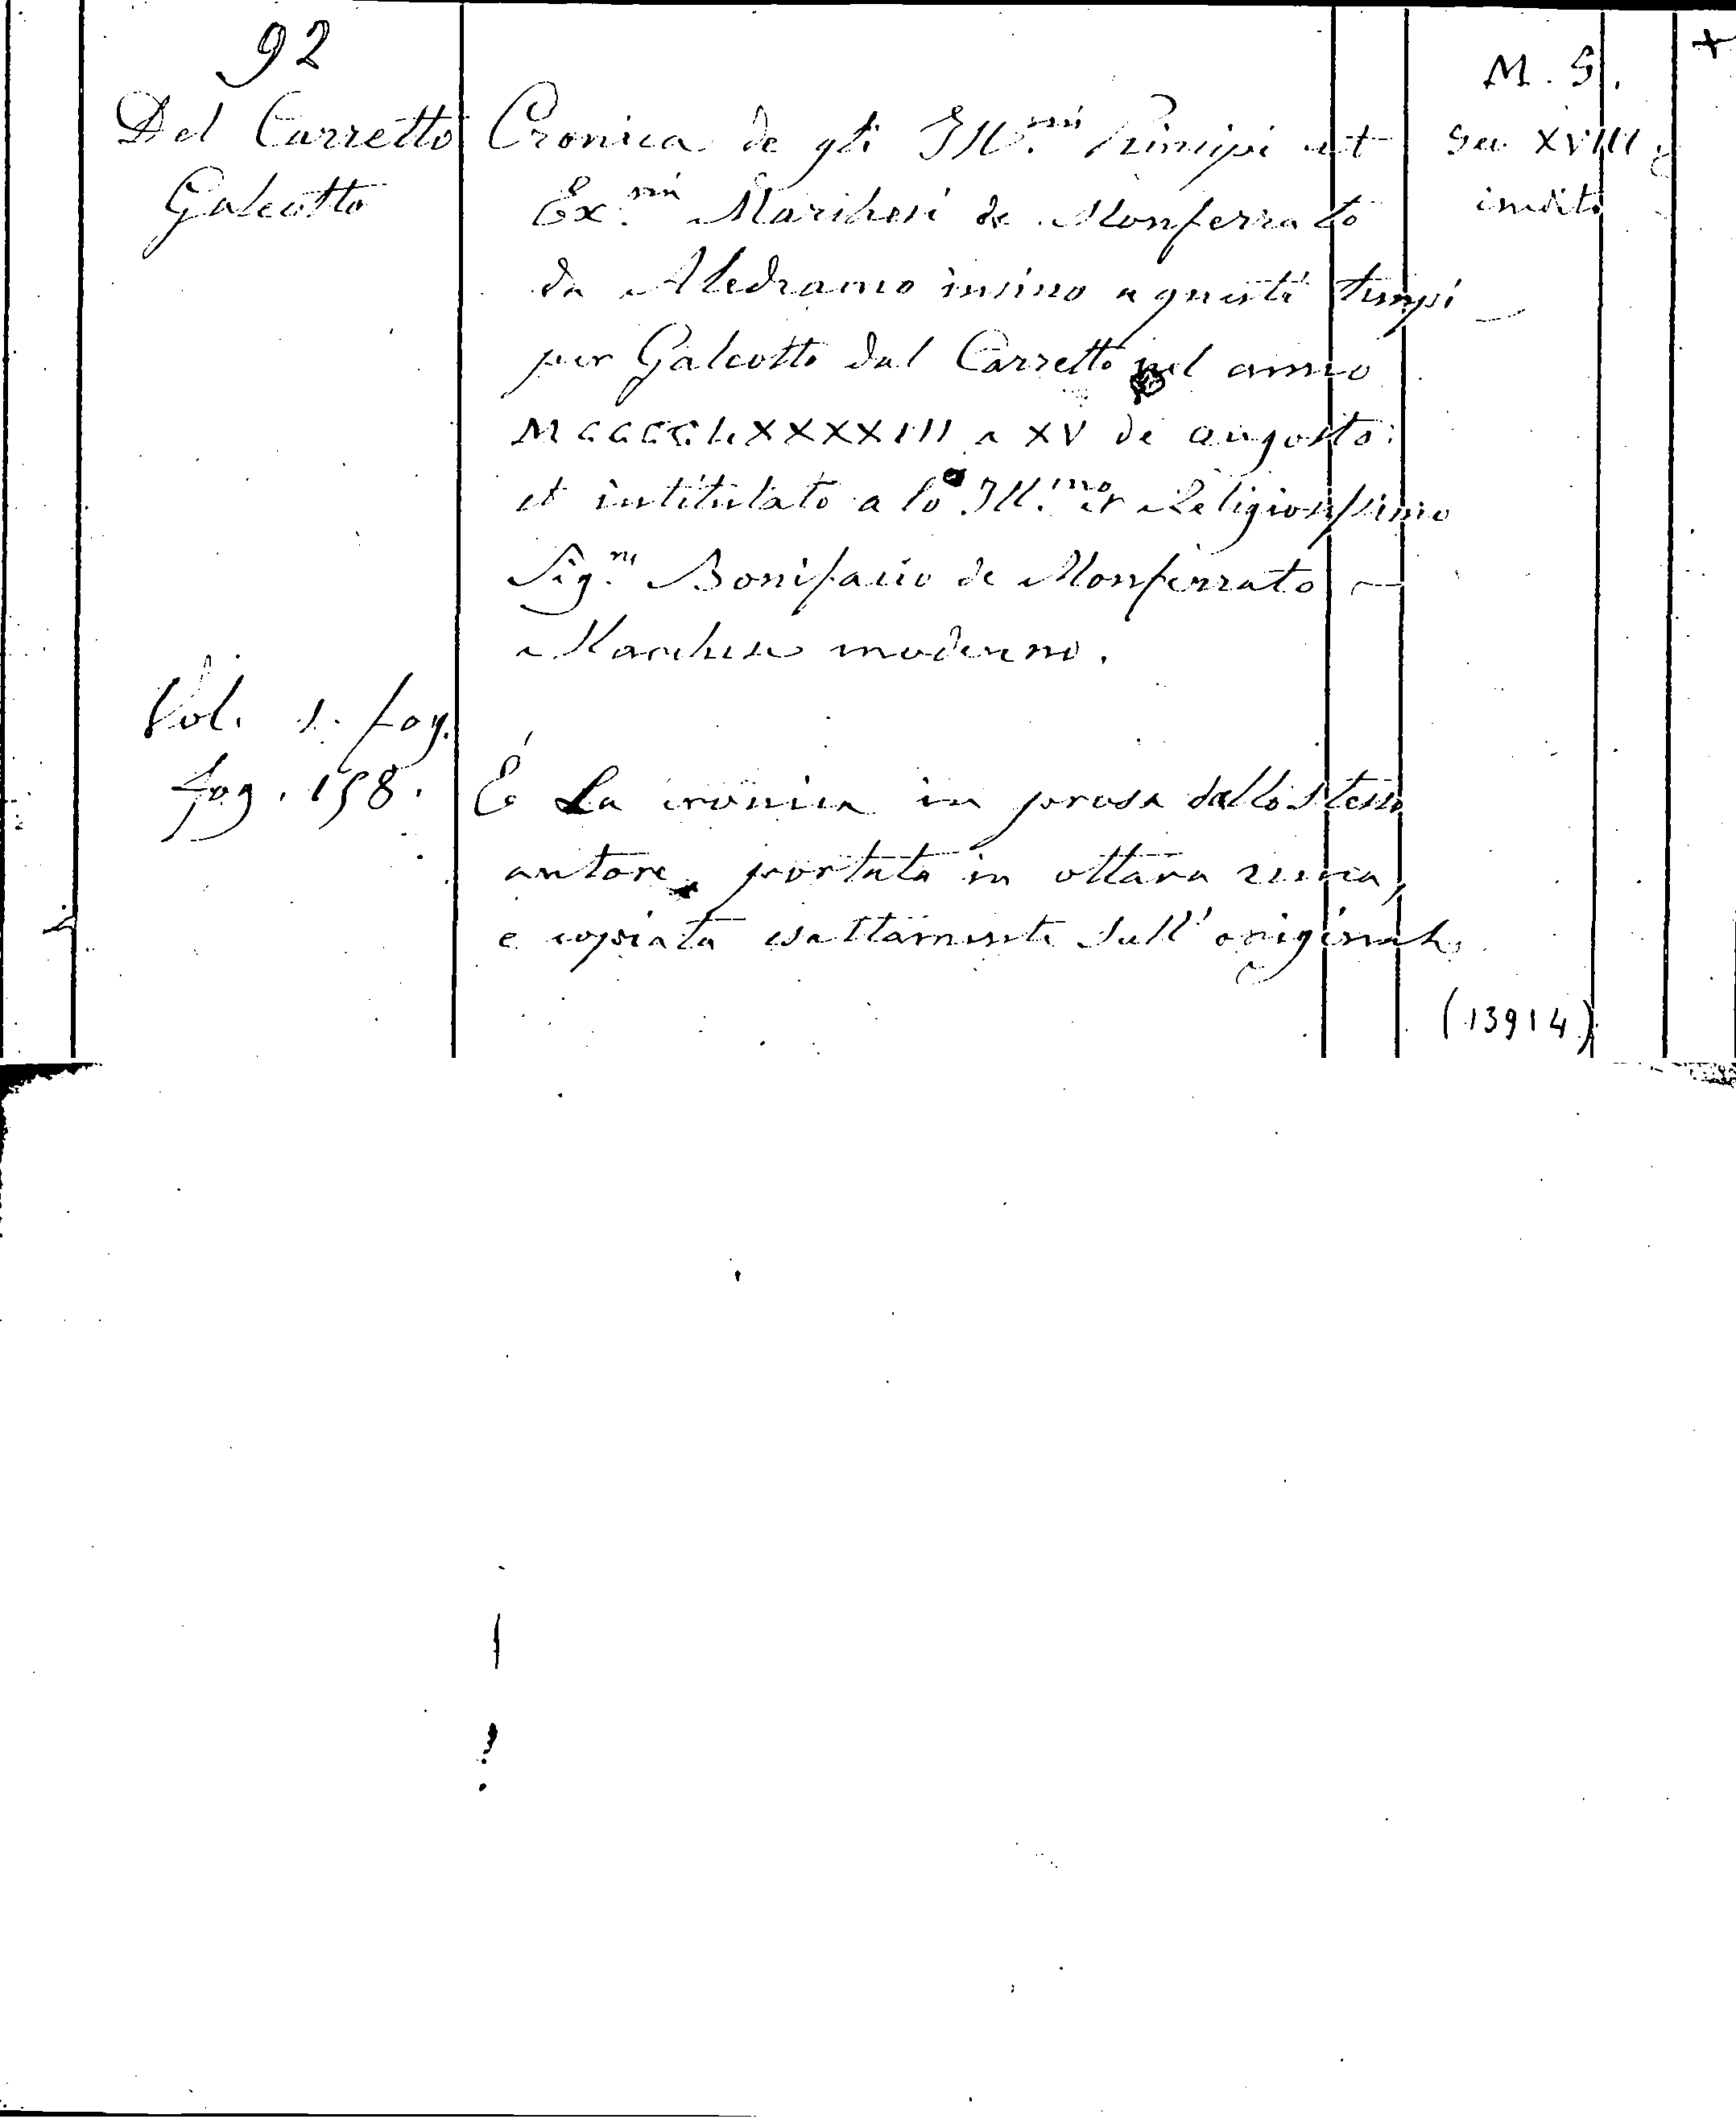 92
Del Carretto
Galeotto
Cronica de gli Ill.mi Principi et
Ex.mi Marchesi de Monferrato
da Aledramo insino a questi tempi
per Galeotto dal Carretto nel anno
MCCCCLXXXXIII a XV de augosto:
et intitulato a lo Ill.mo et Religiosissimo
Sig.re Bonifacio de Monferrato
Marchese moderno.
M. S.
Sec. XVIII
inedito
Vol. 1. fog.
fog. 158.
È La cronica in prosa dallo stesso
autore portata in ottava rima,
e copiata esattamente sull' originale
(13914)